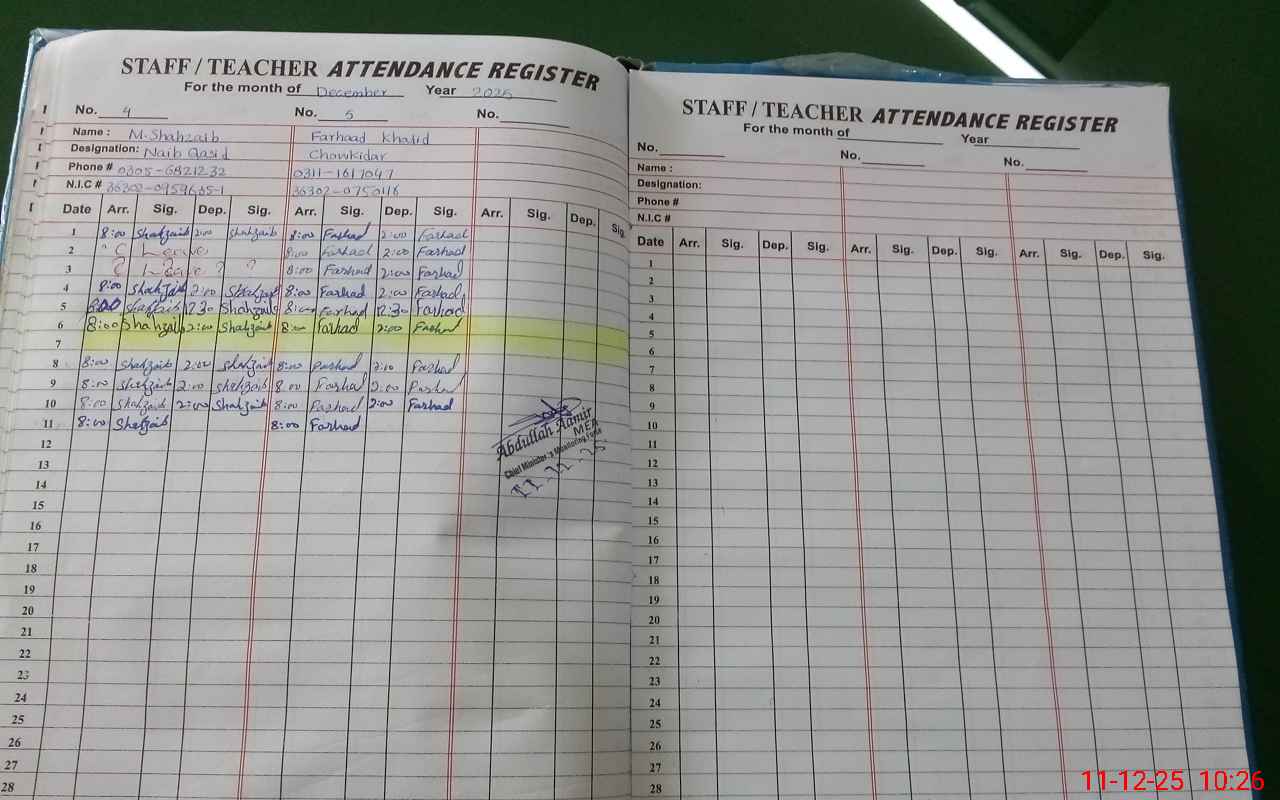 STAFF / TEACHER ATTENDANCE REGISTER
For the month of December Year 2025
No. 4 No. 5 No.
Name : M.Shahzaib Farhaad Khalid
Designation: Naib Qasid Chowkidar
Phone # 0305-6821232 0311-1617047
N.I.C # 36302-0959635-1 36302-0750118
Date Arr. Sig. Dep. Sig. Arr. Sig. Dep. Sig. Arr. Sig. Dep. Sig.
1 8:00 Shahzaib 2:00 Shahzaib 8:00 Farhad 2:00 Farhad
2 Leave 8:00 Farhad 2:00 Farhad
3 Leave 8:00 Farhad 2:00 Farhad
4 8:00 Shahzaib 2:00 Shahzaib 8:00 Farhad 2:00 Farhad
5 8:00 Shahzaib 12:30 Shahzaib 8:00 Farhad 12:30 Farhad
6 8:00 Shahzaib 2:00 Shahzaib 8:00 Farhad 2:00 Farhad
7
8 8:00 Shahzaib 2:00 Shahzaib 8:00 Farhad 2:00 Farhad
9 8:00 Shahzaib 2:00 Shahzaib 8:00 Farhad 2:00 Farhad
10 8:00 Shahzaib 2:00 Shahzaib 8:00 Farhad 2:00 Farhad
11 8:00 Shahzaib 8:00 Farhad
Abdullah Aamir
MEA
Chief Minister's Monitoring Force
11.12.25
12
13
14
15
16
17
18
19
20
21
22
23
24
25
26
27
28
STAFF / TEACHER ATTENDANCE REGISTER
For the month of Year
No. No. No.
Name :
Designation:
Phone #
N.I.C #
Date Arr. Sig. Dep. Sig. Arr. Sig. Dep. Sig. Arr. Sig. Dep. Sig.
1
2
3
4
5
6
7
8
9
10
11
12
13
14
15
16
17
18
19
20
21
22
23
24
25
26
27
28
11-12-25 10:26